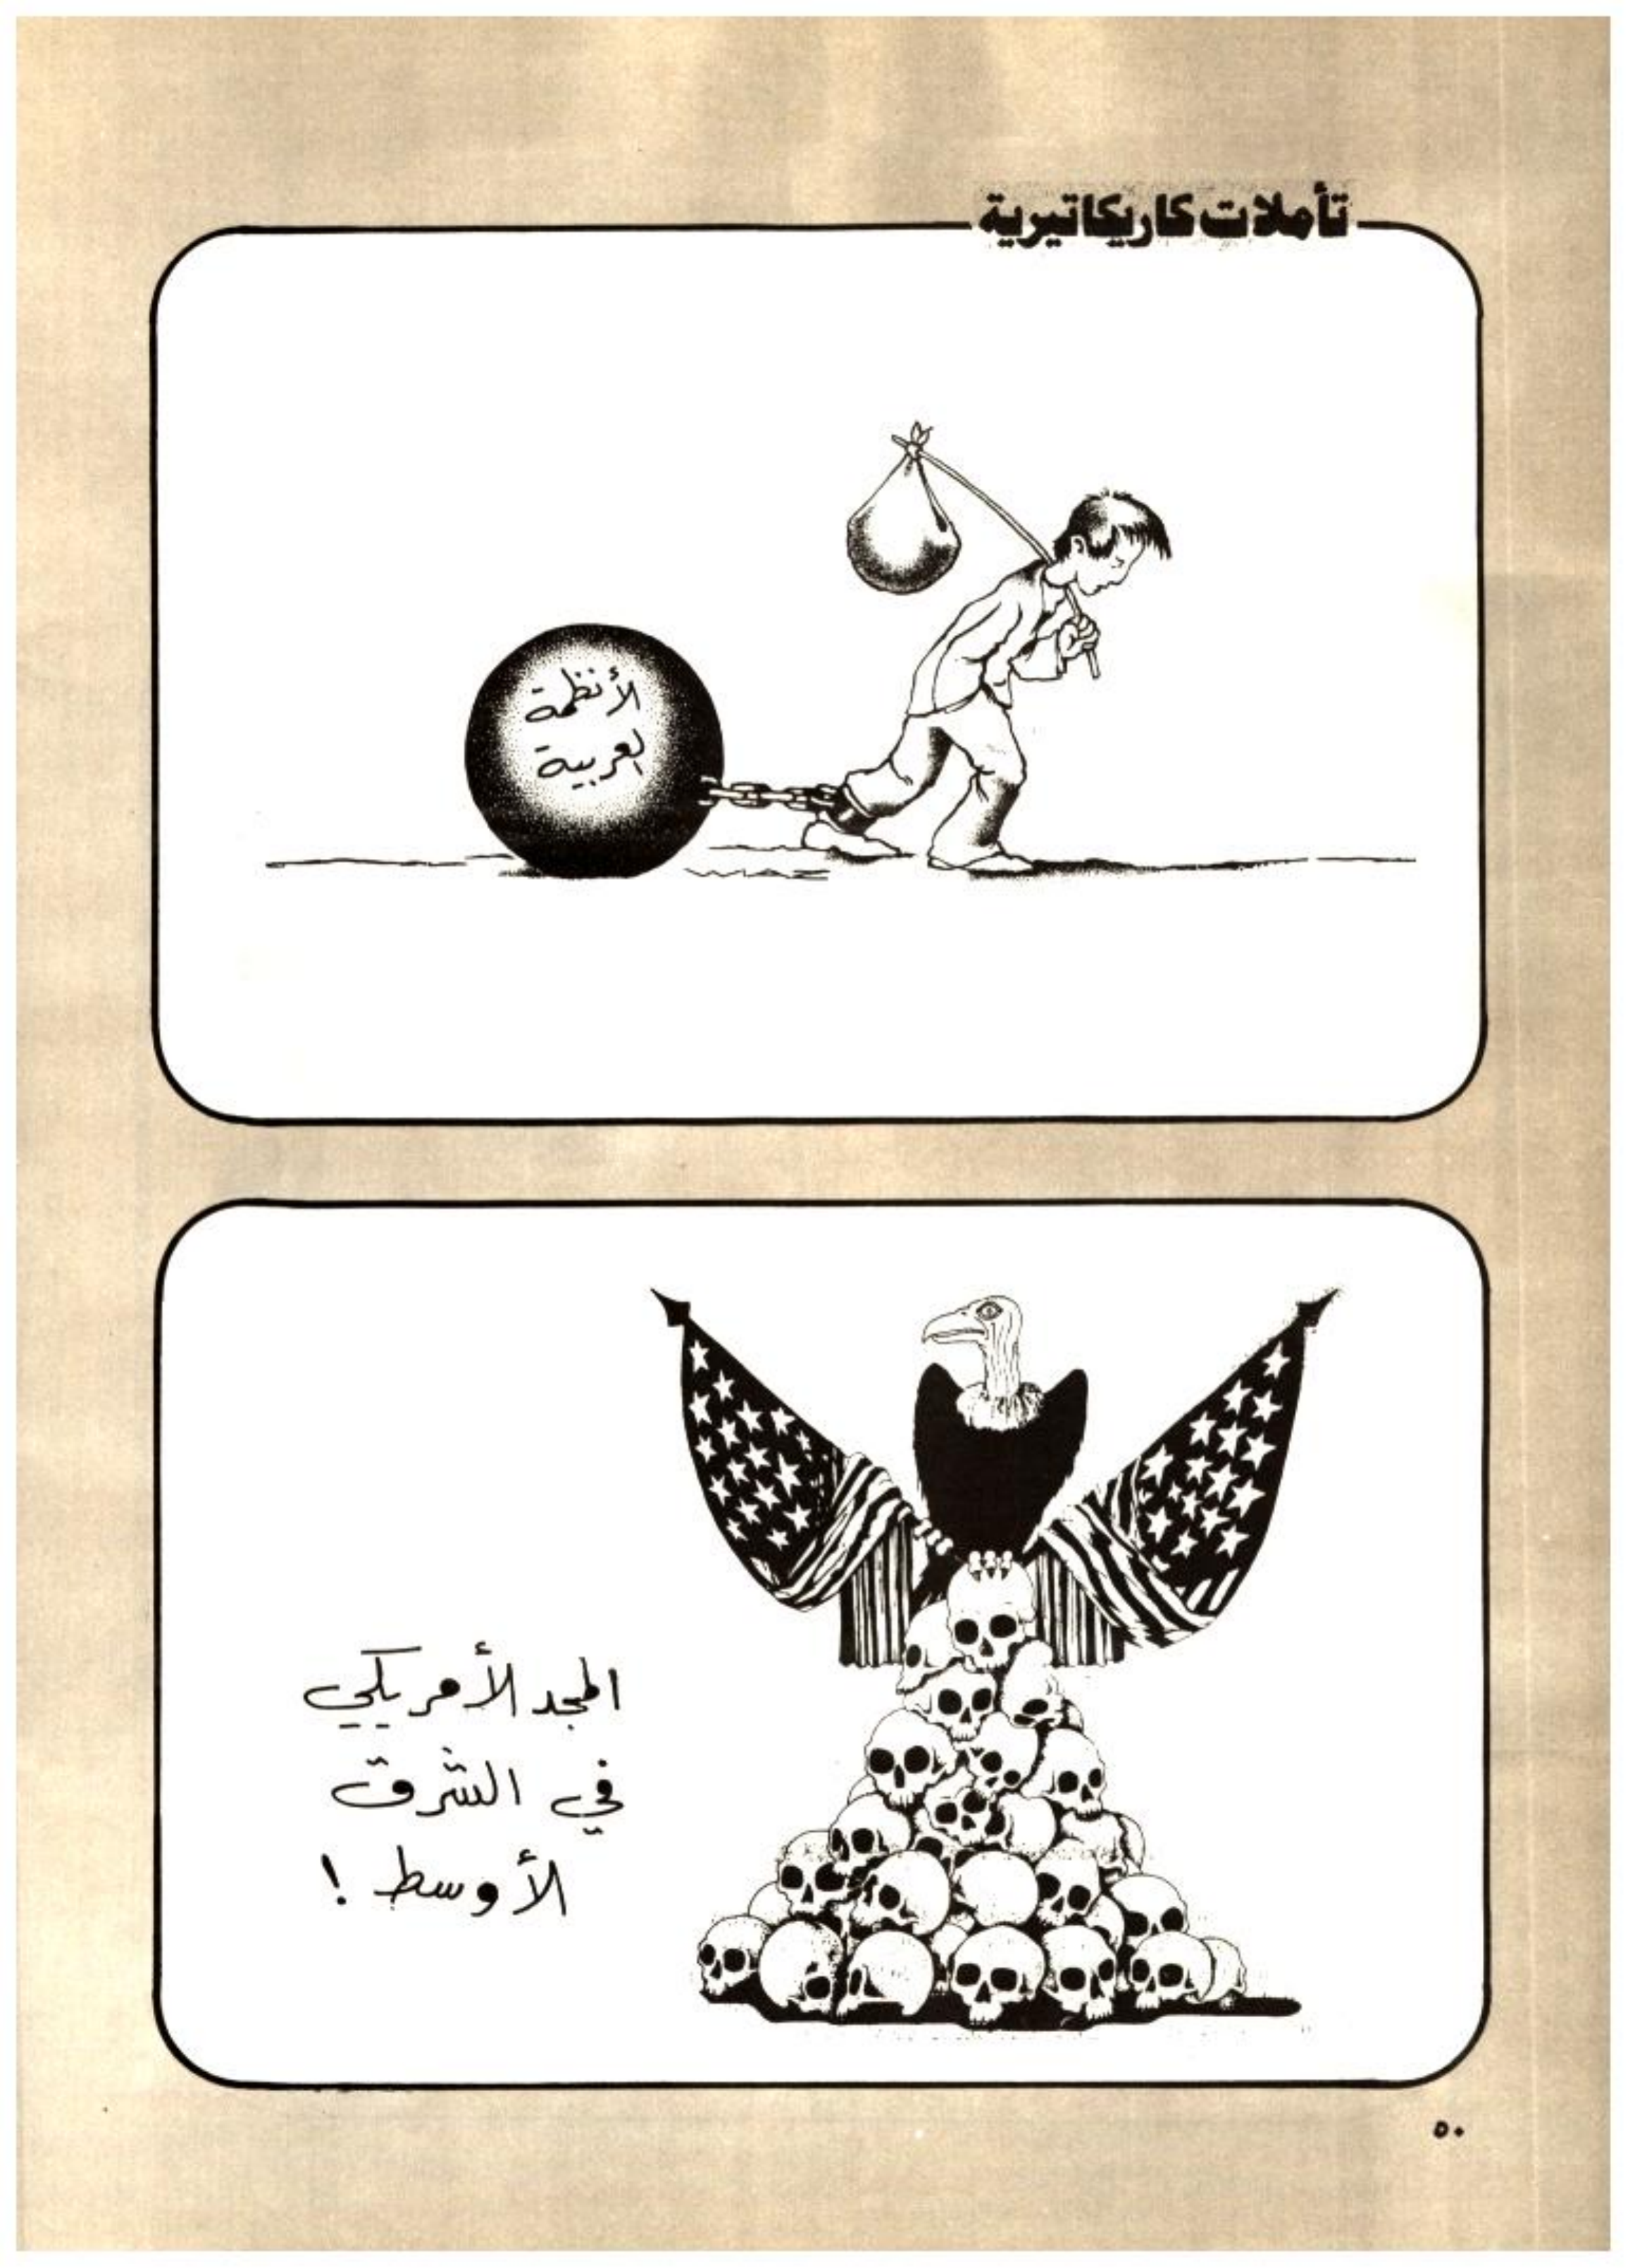 تأملات كاريكاتيرية
الأنظمة
العربية
WIAZ
المجد الأمريكي
في الشرق
الأوسط !
٥٠